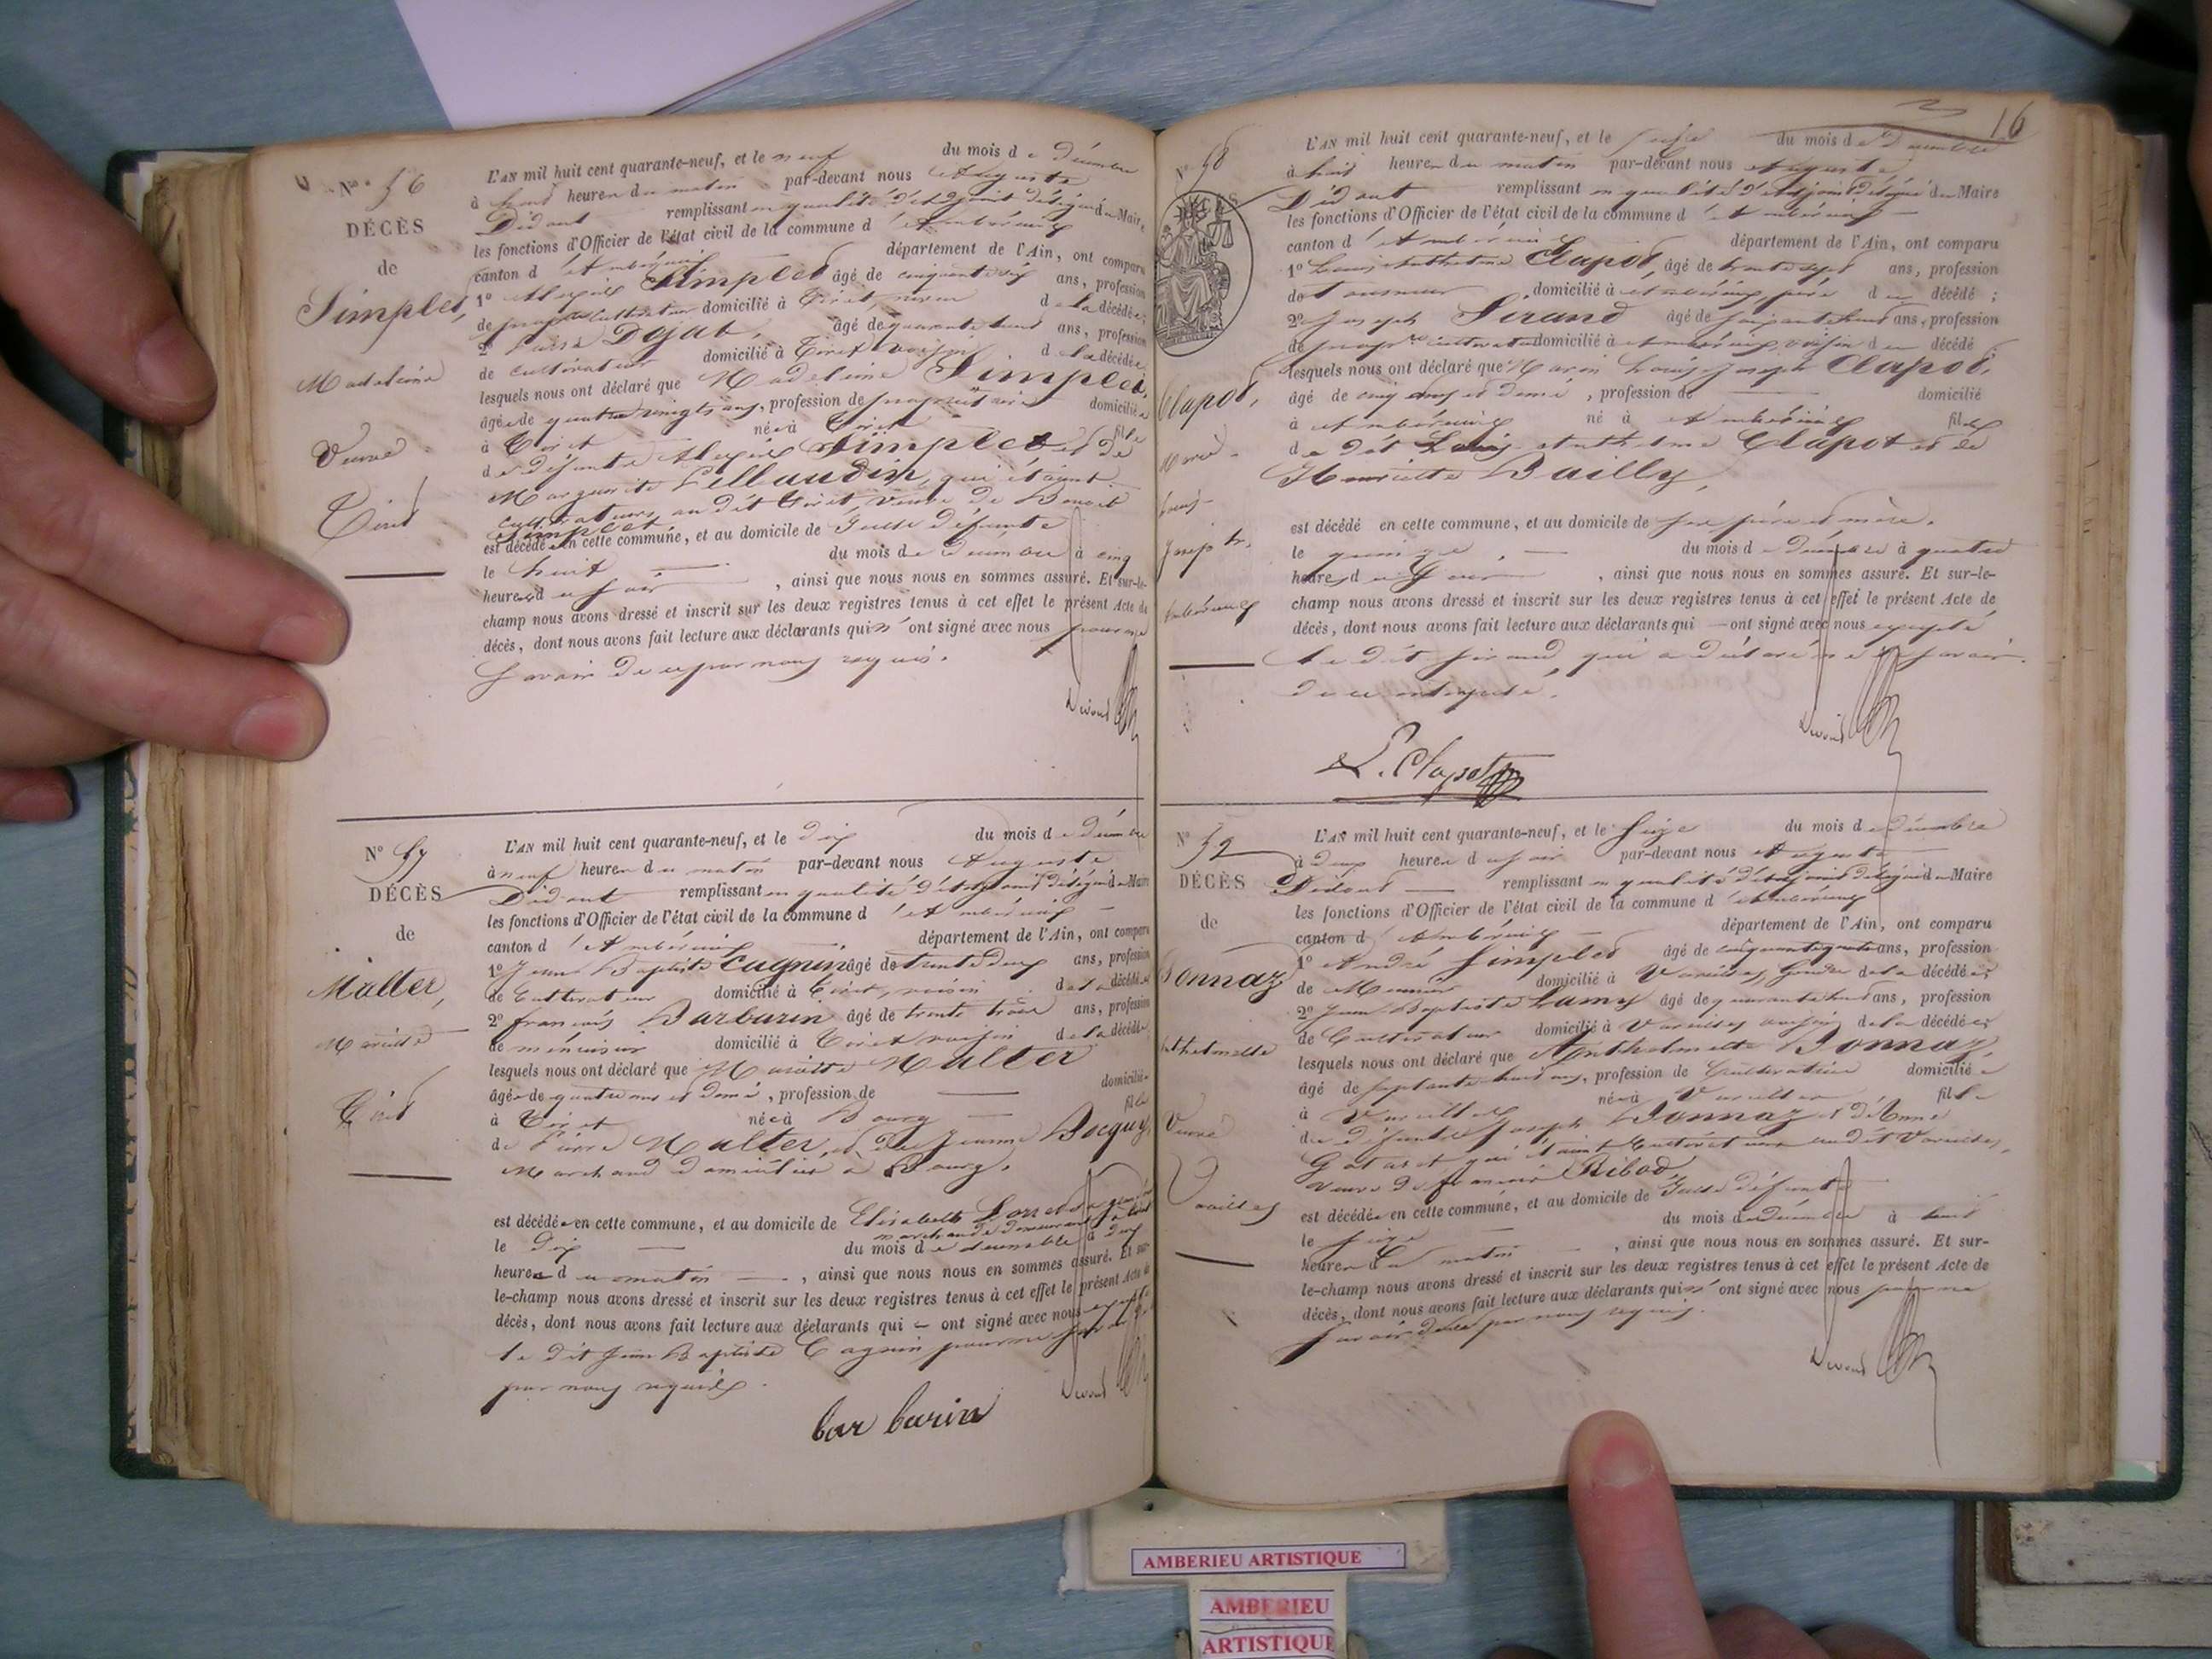 N° 56
DÉCÈS
de
Simplet,
Madeleine
Veuve
Tiret
L'AN mil huit cent quarante-neuf, et le neuf du mois de Décembre
à huit heures du matin par-devant nous Auguste
Didout remplissant en qualité d'adjoint délégué du Maire
les fonctions d'Officier de l'état civil de la commune d'Ambérieux
canton d'Ambérieux département de l'Ain, ont comparu
1° Alexis Simplet âgé de cinquante six ans, profession
de prop. cultivateur domicilié à Tiret, neveu de la décédée;
2° Pierre Dojat, âgé de quarante huit ans, profession
de cultivateur domicilié à Tiret voisin de la décédée
lesquels nous ont déclaré que Madeleine Simplet,
âgée de quatre vingts ans, profession de propriétaire domiciliée
à Tiret née à Tiret fille
de défunts Alexis Simplet et de
Marguerite Pellaudin, qui étaient
cultivateurs au dit Tiret, veuve de Benoit
Simplet
est décédée en cette commune, et au domicile de ladite défunte
le huit du mois de Décembre à cinq
heures du soir, ainsi que nous nous en sommes assuré. Et sur-le-
champ nous avons dressé et inscrit sur les deux registres tenus à cet effet le présent Acte de
décès, dont nous avons fait lecture aux déclarants qui n'ont signé avec nous pour ne
savoir de ce par nous requis.
N° 57
DÉCÈS
de
Malter,
Mariette
Tiret
L'AN mil huit cent quarante-neuf, et le dix du mois de Décembre
à neuf heures du matin par-devant nous Auguste
Didout remplissant en qualité d'adjoint délégué du Maire
les fonctions d'Officier de l'état civil de la commune d'Ambérieux
canton d'Ambérieux département de l'Ain, ont comparu
1° Jean Baptiste Cagnin âgé de trente deux ans, profession
de Cultivateur domicilié à Tiret, voisin de la décédée
2° françois Barbarin âgé de trente trois ans, profession
de menuisier domicilié à Tiret voisin de la décédée
lesquels nous ont déclaré que Mariette Malter
âgée de quatre ans et demi, profession de domiciliée
à Tiret née à Bourg fille
de Pierre Malter, et de Jeanne Bocquy,
Marchand domiciliés à Bourg.
est décédée en cette commune, et au domicile de Elisabeth
marchande demeurant
le Dix du mois de décembre à deux
heures du matin, ainsi que nous nous en sommes assuré. Et sur-
le-champ nous avons dressé et inscrit sur les deux registres tenus à cet effet le présent Acte de
décès, dont nous avons fait lecture aux déclarants qui ont signé avec nous excepté
le dit Jean Baptiste Cagnin pour ne savoir
par nous requis.
bar barin
16
N° 58
Clapot,
Marie
Louis
Joseph,
Ambérieux
L'AN mil huit cent quarante-neuf, et le seize du mois de Décembre
à huit heures du matin par-devant nous Auguste
Didout remplissant en qualité d'adjoint délégué du Maire
les fonctions d'Officier de l'état civil de la commune d'Ambérieux
canton d'Ambérieux département de l'Ain, ont comparu
1° Louis Anthelme Clapot, âgé de trente sept ans, profession
de Tanneur domicilié à Ambérieux, père du décédé;
2° Joseph Sirand âgé de soixante huit ans, profession
de prop.re cultivateur domicilié à Ambérieux, voisin du décédé
lesquels nous ont déclaré que Marie Louis Joseph Clapot,
âgé de cinq ans et demi, profession de domicilié
à Ambérieux né à Ambérieux fils
de dit Louis Anthelme Clapot et de
Henriette Bailly,
est décédé en cette commune, et au domicile de ses père et mère.
le quinze, du mois de Décembre à quatre
heures du soir, ainsi que nous nous en sommes assuré. Et sur-le-
champ nous avons dressé et inscrit sur les deux registres tenus à cet effet le présent Acte de
décès, dont nous avons fait lecture aux déclarants qui ont signé avec nous excepté
le dit Sirand, qui a déclaré ne savoir
de ce interpelé.
L. Clapot
N° 59
DÉCÈS
de
Bonnaz
Anthelmette
Veuve
Vareilles
L'AN mil huit cent quarante-neuf, et le Seize du mois de Décembre
à deux heures du soir par-devant nous Auguste
Didout remplissant en qualité d'adjoint délégué du Maire
les fonctions d'Officier de l'état civil de la commune d'Ambérieux
canton d'Ambérieux département de l'Ain, ont comparu
1° André Simplet âgé de cinquante quatre ans, profession
de Meunier domicilié à Vareilles, gendre de la décédée;
2° Jean Baptiste Lamy âgé de quarante huit ans, profession
de Cultivateur domicilié à Vareilles voisin de la décédée;
lesquels nous ont déclaré que Anthelmette Bonnaz,
âgé de septante huit ans, profession de Cultivatrice domiciliée
à Vareilles née à Vareilles fille
de défunts Joseph Bonnaz et d'Anne
qui étaient Cultivateurs audit Vareilles,
veuve de françois Ribod,
est décédée en cette commune, et au domicile de ladite défunte
le seize du mois de décembre à huit
heures du matin, ainsi que nous nous en sommes assuré. Et sur-
le-champ nous avons dressé et inscrit sur les deux registres tenus à cet effet le présent Acte de
décès, dont nous avons fait lecture aux déclarants qui n'ont signé avec nous pour ne
savoir de ce par nous requis.
AMBERIEU ARTISTIQUE
AMBERIEU
ARTISTIQUE